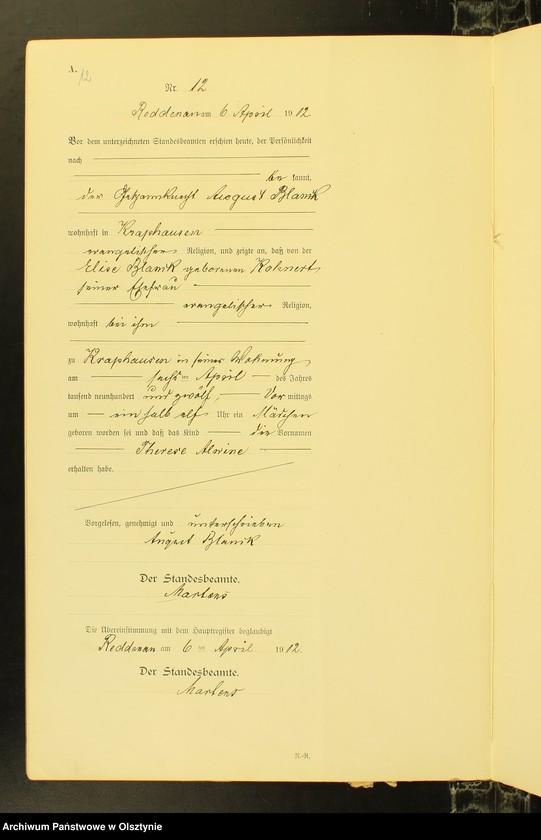 A.
12
Nr. 12
Reddenau am 6 April 1912
Vor dem unterzeichneten Standesbeamten erschien heute, der Persönlichkeit
nach
be kannt,
der August Blank
wohnhaft in Kraphausen
evangelischer Religion, und zeigte an, daß von der
Elise Blank geborenen Kohnert,
seiner Ehefrau
evangelischer Religion,
wohnhaft bei ihm
zu Kraphausen in seiner Wohnung,
am sechsten April des Jahres
tausend neunhundert und zwölf, Vor mittags
um ein halb elf Uhr ein Mädchen
geboren worden sei und daß das Kind die Vornamen
Therese Alwine
erhalten habe.
Vorgelesen, genehmigt und unterschrieben
August Blank
Der Standesbeamte.
Martens
Die Übereinstimmung mit dem Hauptregister beglaubigt
Reddenau am 6 ten April 1912.
Der Standesbeamte.
Martens
N.-R.
Archiwum Państwowe w Olsztynie